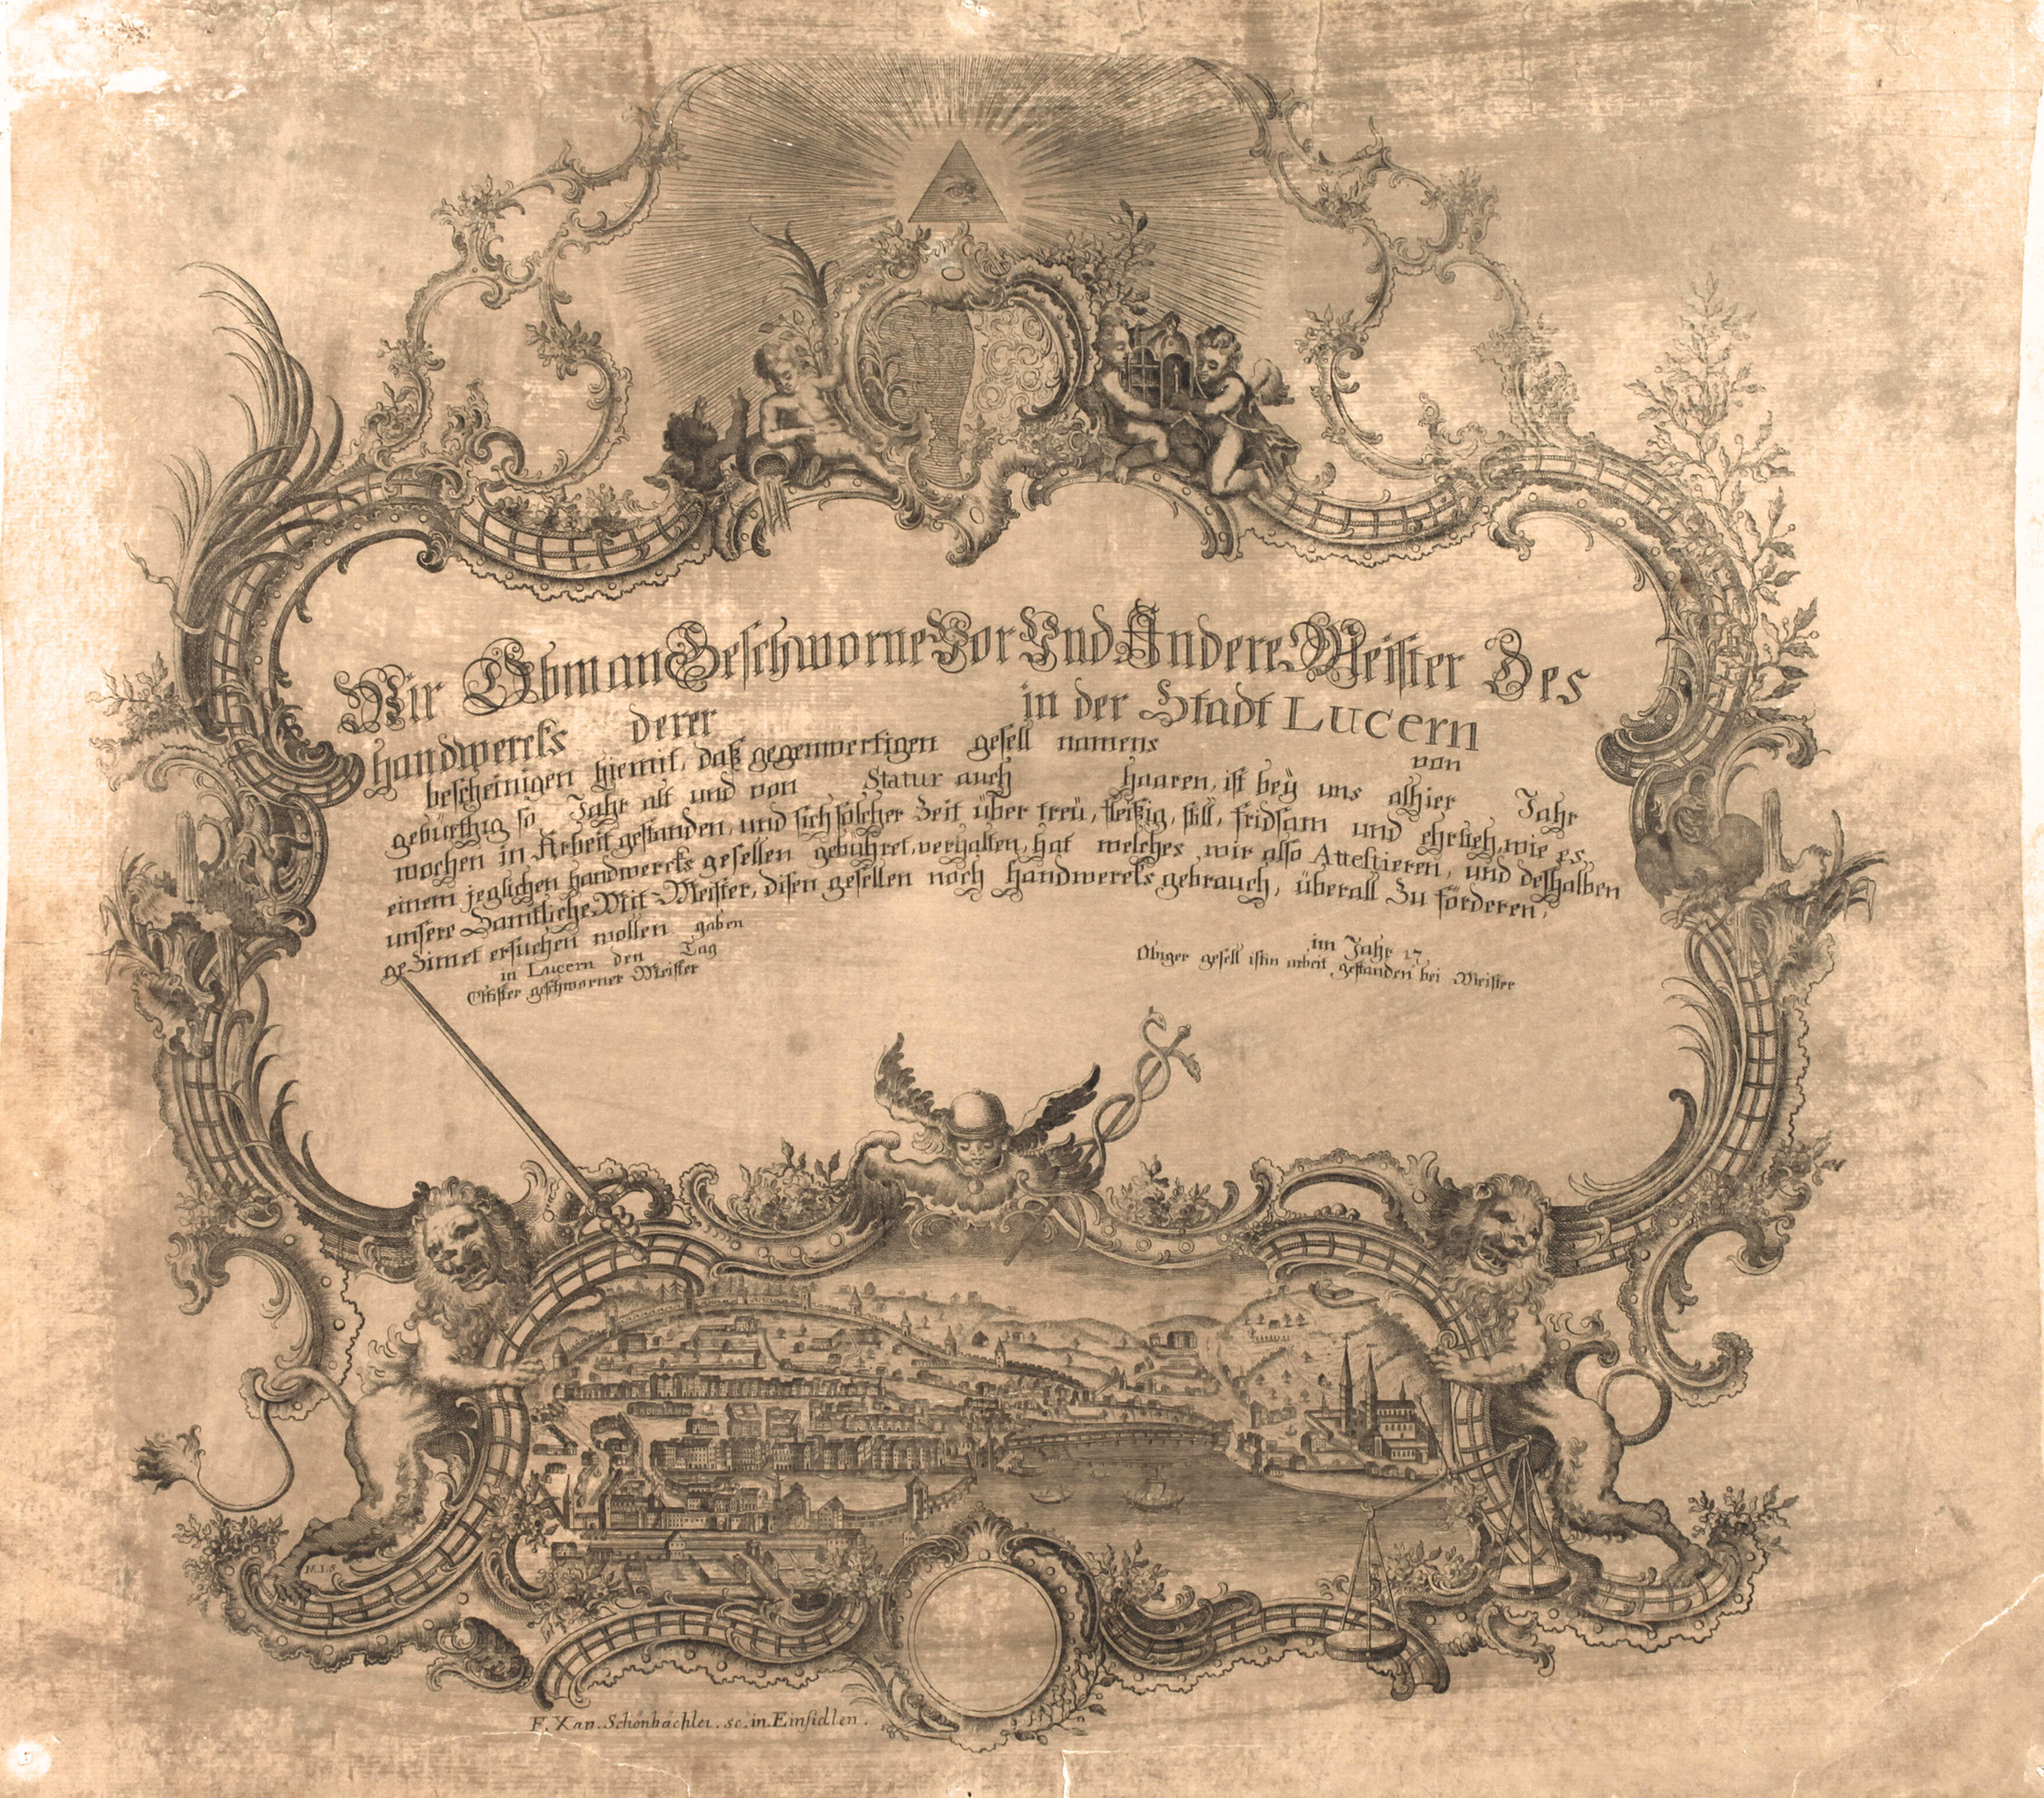 Wir Obman Geschworne Vor Vnd Andere Meister Des
handwercks derer in der Stadt Lucern
bescheinigen hiemit, daß gegenwertigen gesell namens von
gebürthig so Jahr alt und von Statur auch haaren, ist bey uns alhier Jahr
wochen in Arbeit gestanden, und sich solcher Zeit über treü, fleißig, still, fridsam und ehrlich, wie es
einem jeglichen handwercks gesellen gebühret, verhalten, hat welches wir also Attestieren, und deßhalben
unsere Samtliche Mit-Meister, disen gesellen nach handwercks gebrauch, überall Zu förderen,
geZimet ersuchen wollen gaben
in Lucern den Tag im Jahr 17
geschworner Meister Obiger gesell ist in arbeit gestanden bei Meister
F. Xav. Schönbächler. sc. in. Einsidlen.